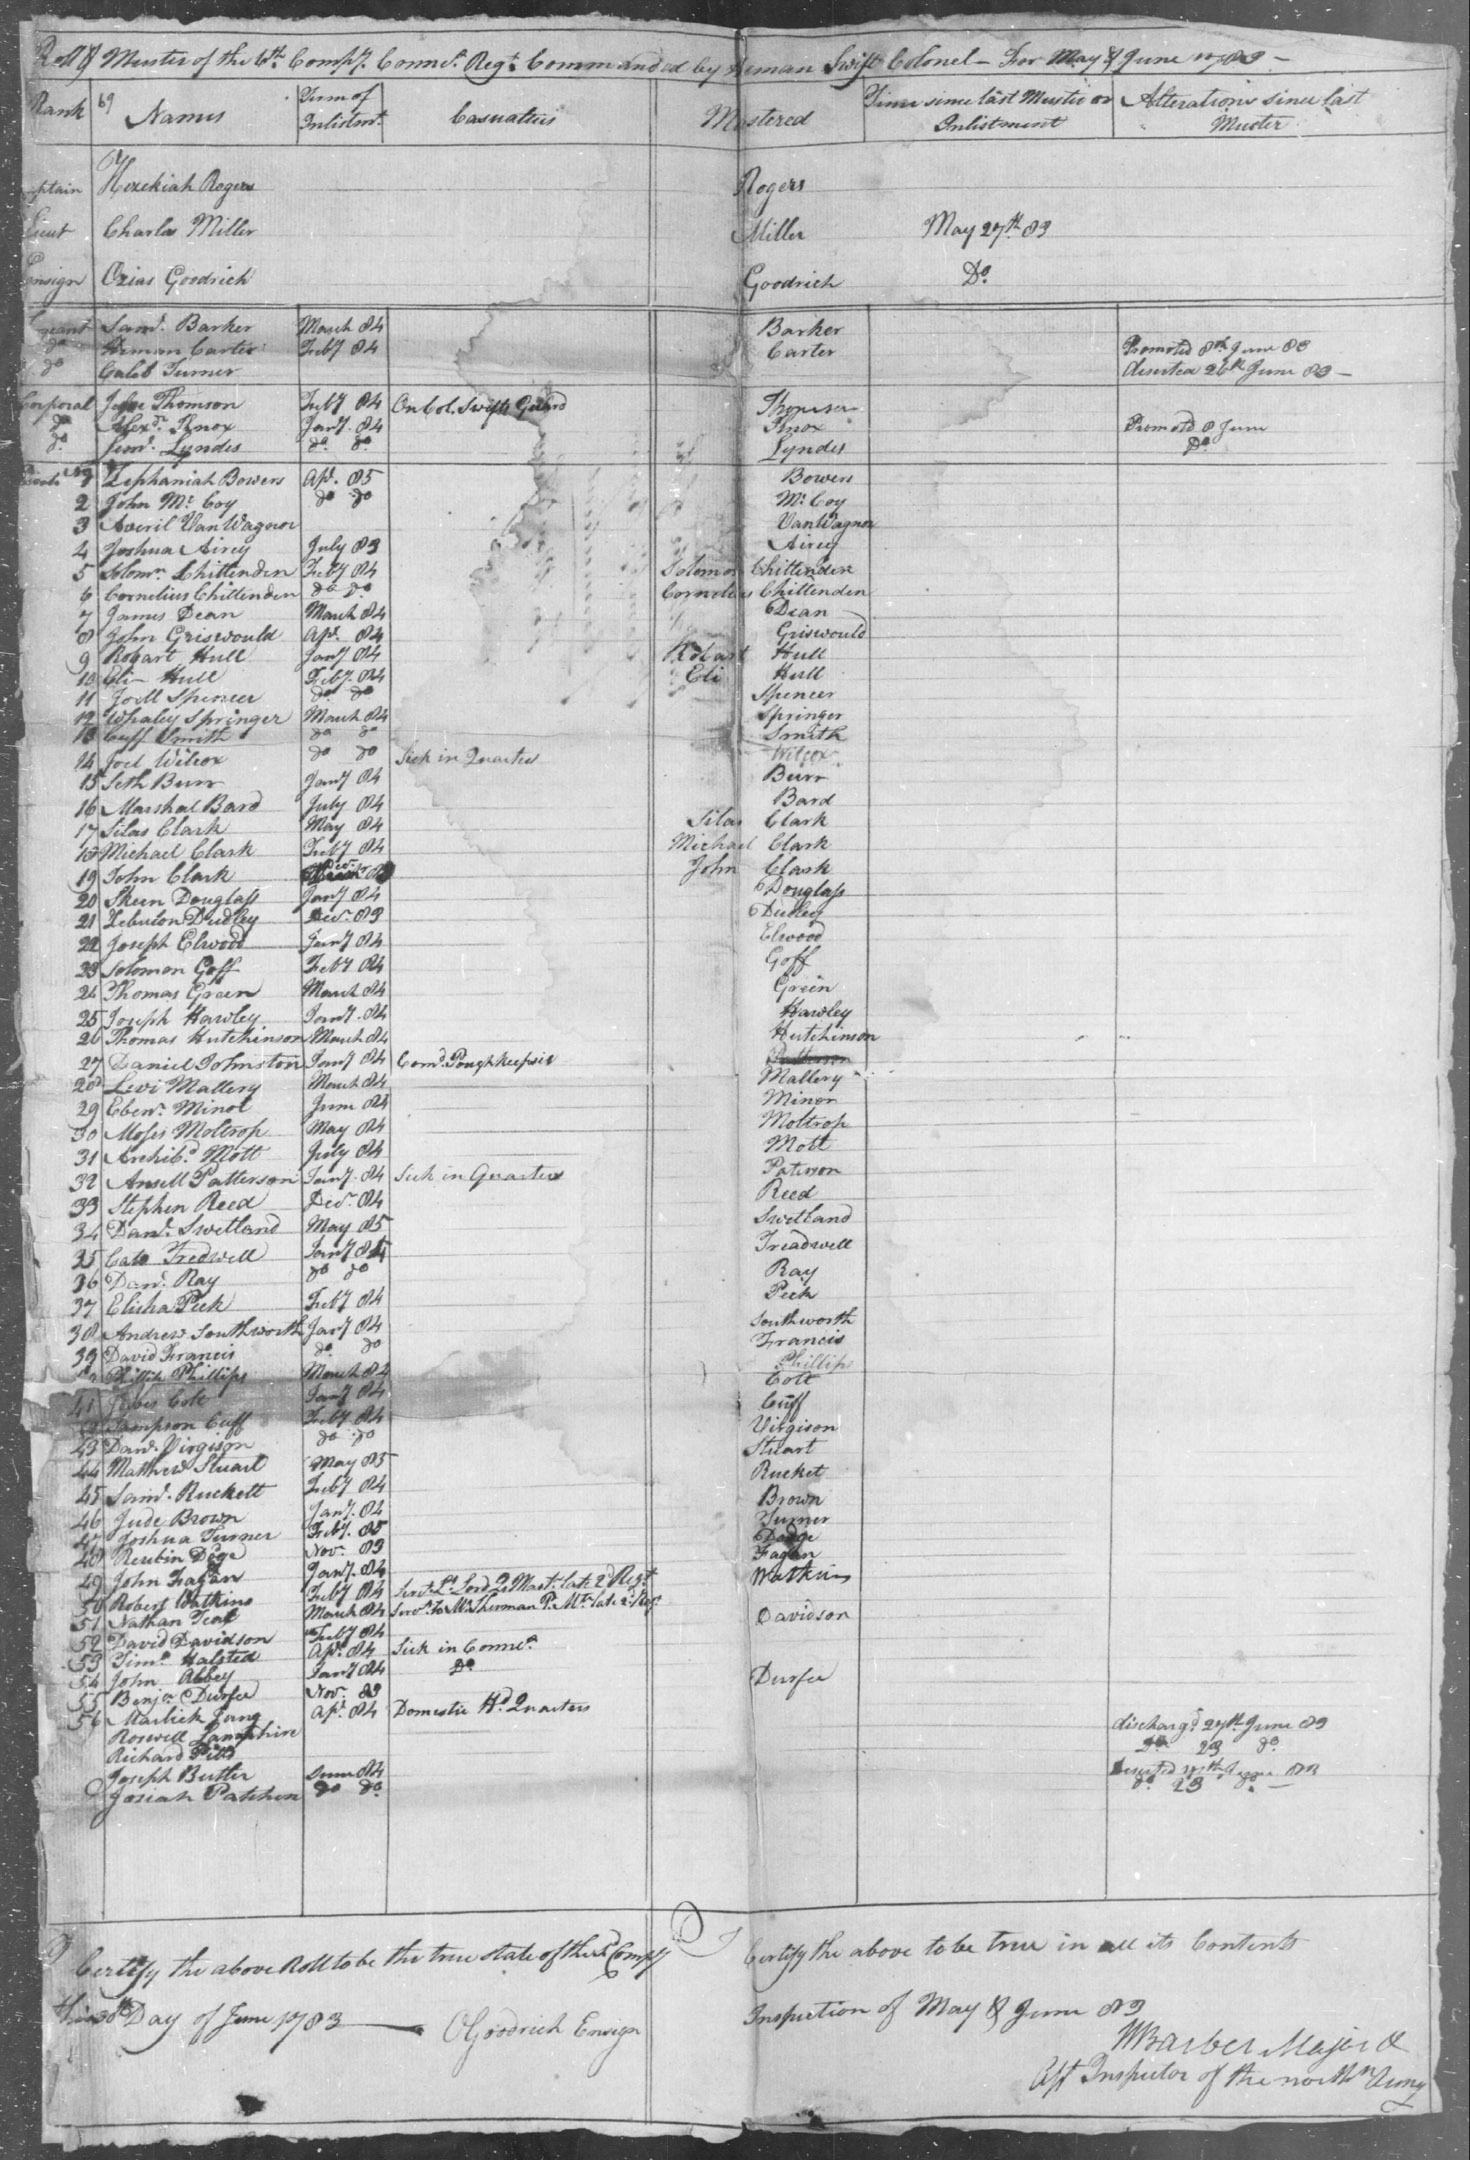 Roll & Muster of the 6th Compy. Connt. Regt. Commanded by Heman Swift Colonel — For May & June 1783 —
Rank 69 Names Term of Inlistmt. Casualties Mustered Time since last Muster or Inlistment Alterations since last Muster
Captain Hezekiah Rogers Rogers
Lieut Charles Miller Miller May 27th 83
Ensign Ozias Goodrich Goodrich Do.
Sergeant Saml. Barker March 84 Barker
do Heman Carter Feby 84 Carter Promoted 8th June 83
do Caleb Turner deserted 26th June 83 —
Corporal Jesse Thomson Feby 84 On Col. Swifts Guard Thomson
do Alexr. Knox Jany. 84 Knox Promotd 8 June
do. Lynds do do. Lyndes Do
1 Zephaniah Bowers Apl. 85 Bowers
2 John Mc Coy do do Mc Coy
3 Averil VanWagnor VanWagnor
4 Joshua Airey July 83 Airey
5 Solomn. Chittenden Feby 84 Solomon Chittenden
6 Cornelius Chittenden do do. Cornelius Chittenden
7 James Dean March 84 Dean
8 John Griswould Apl. 84 Griswould
9 Robart Hull Jany 84 Robart Hull
10 Eli Hull Feby. 84 Eli Hull
11 Joell Spencer do do Spencer
12 Whaley Springer March 84 Springer
13 Cuff Smith do do Smith
14 Joel Wilcox do do Sick in Quarters Wilcox
15 Seth Burr Jany 84 Burr
16 Marshal Bard July 84 Bard
17 Silas Clark May 84 Silas Clark
18 Michael Clark Feby 84 Michael Clark
19 John Clark Decr. 83 John Clark
20 Skeen Douglass Jany 84 Douglass
21 Zebulon Dudley Decr. 83 Dudley
22 Joseph Elwood Jany 84 Elwood
23 Solomon Goff Feby 84 Goff
24 Thomas Green March 84 Green
25 Joseph Hawley Jany. 84 Hawley
26 Thomas Hutchinson March 84 Hutchinson
27 Daniel Johnston Jany 84 Comd. Poughkeepsie
28 Levi Mallery March 84 Mallery
29 Ebenr. Minor June 84 Minor
30 Moses Moltrop May 84 Moltrop
31 Archibd. Mott July 84 Mott
32 Ansell Patterson Jany. 84 Sick in Quarters Paterson
33 Stephen Reed Decr. 84 Reed
34 Danl. Swetland May 85 Swetland
35 Cato Tredwell Jany 84 Treadwell
36 Danl. Ray do do Ray
37 Elisha Peck Feby 84 Peck
38 Andrew Southworth Jany 84 Southworth
39 David Francis do. do Francis
40 Phillip Phillips March 84 Phillips
41 Jabes Cole Jany 84 Cole
42 Sampson Cuff Feby 84 Cuff
43 Danl. Virgison do do Virgison
44 Mathew Stuart May 85 Stuart
45 Saml. Ruckett Feby 84 Rucket
46 Jude Brown Jany. 84 Brown
47 Joshua Turner Feby. 85 Turner
48 Reubin Doge Nov. 83 Dodge
49 John Fagan Jany. 84 Fagan
50 Robert Watkins Feby 84 Servt. Lt. Lord Qr Mastr. late 2d Regt. Watkins
51 Nathan Teal March 84 Servt. to Mr. Sherman P. Mr. late 2d Regt
52 David Davidson Feby 84 Davidson
53 Timy. Halsted Apl. 84 Sick in Connet.
54 John Abbey Jany 84 Do
55 Benjn. Durfee Nov. 83 Durfee
56 Jung Apl. 84 Domestic Hd. Quarters
Roswell Lamphire dischargd 27th June 83
Richard Pitts Do 23 do.
Joseph Butler June 84 Deserted June 83
Josiah Patchen do do. do. 23 do. —
I Certify the above Roll to be the true state of the sd. Compy
this 30th Day of June 1783 — OGoodrich Ensign
I Certify the above to be true in all its Contents
Inspection of May & June 83
WBarber Major &
Asst Inspector of the northn Army